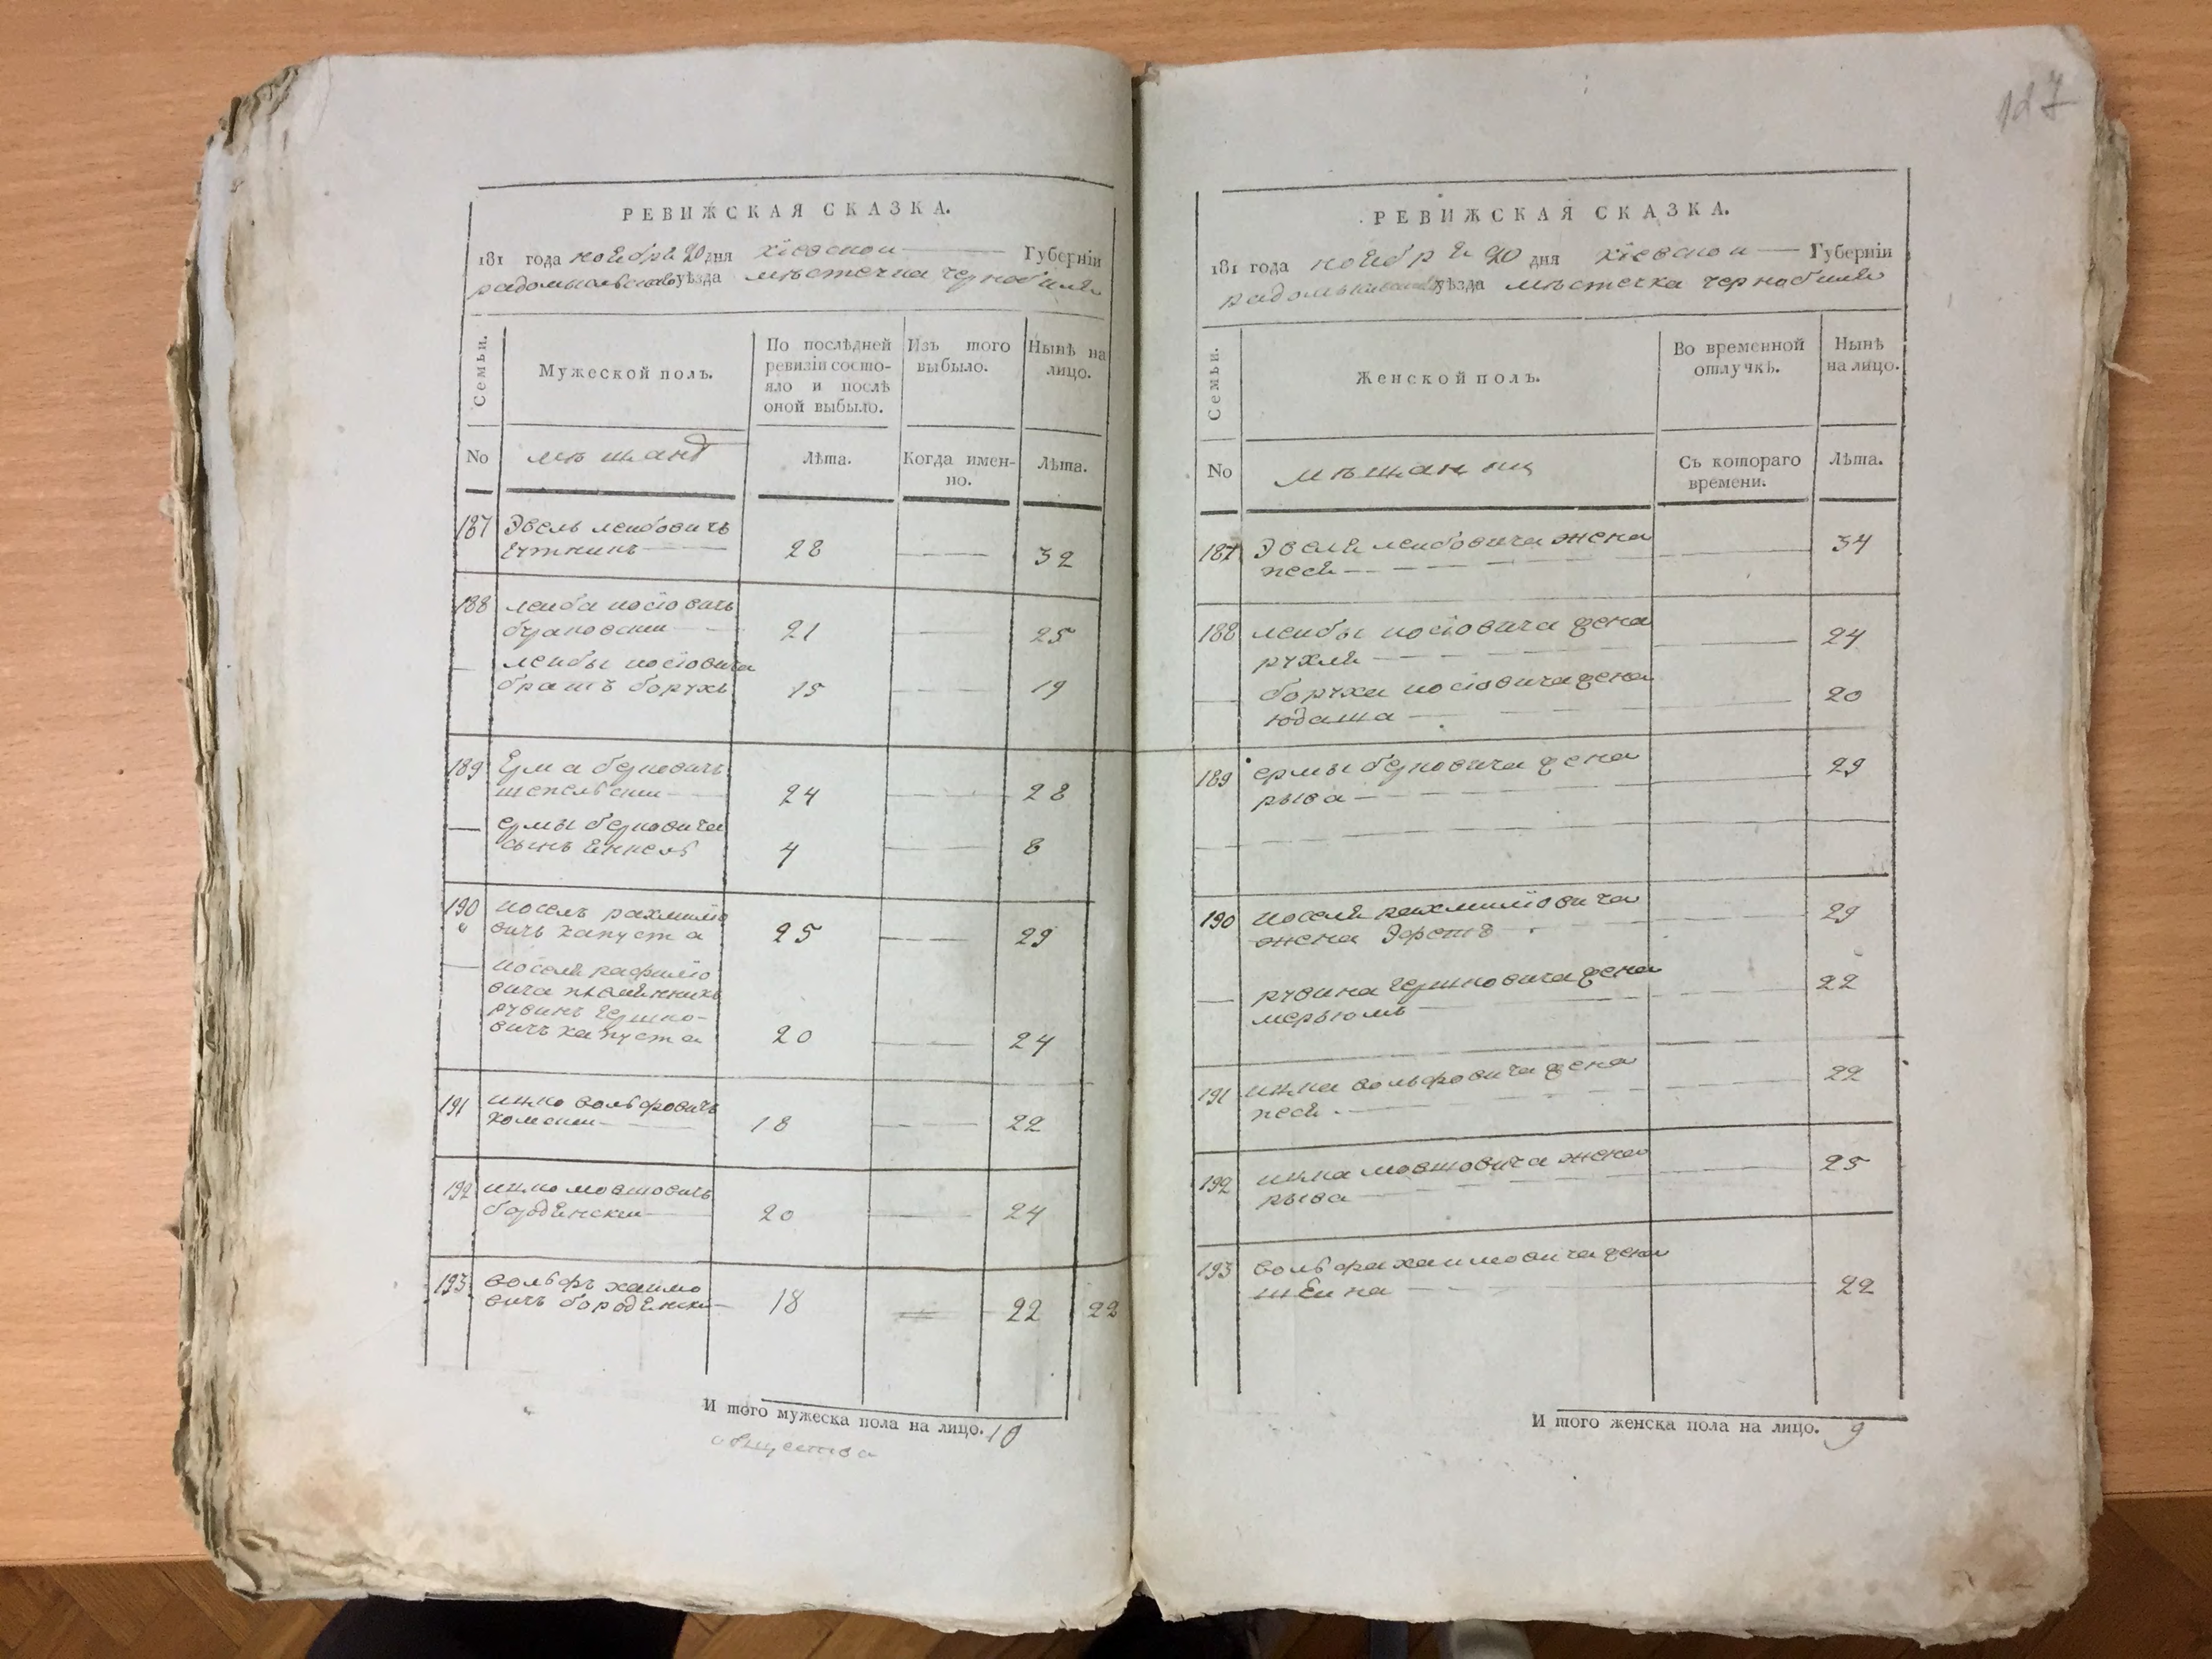 РЕВИЖСКАЯ СКАЗКА.
181 года ноября 20 дня Кіевской Губерніи
радомысльского уѣзда мѣстечка чернобиля
Семьи.
Мужеской полъ.
По послѣдней ревизіи состояло и послѣ оной выбыло.
Изъ того выбыло.
Нынѣ на лицо.
No
мѣщанъ
Лѣта.
Когда именно.
Лѣта.
187 Эвель леибовичъ
28 32
188 леиба иосіовичъ
21 25
леибы иосіовича
братъ борухъ 15 19
189 Ерма берковичъ
24 28
ермы берковича
сынъ Янкель 4 8
190 иосель рахмиліо
вичъ капуста 25 29
иоселя рафиліо
вича племянникъ
рувинъ Гершко-
вичъ капуста 20 24
191 ицко вольфовичъ
18 22
192 ицко мовшовичъ
бородянски 20 24
193 вольфъ хаимо
вичъ бородянски 18 22 22
И того мужеска пола на лицо. 10
общества
117
РЕВИЖСКАЯ СКАЗКА.
181 года ноября 20 дня Кіевской Губерніи
уѣзда мѣстечка чернобиля
Семьи.
Женской полъ.
Во временной отлучкѣ.
Нынѣ на лицо.
No
мѣщанки
Съ котораго времени.
Лѣта.
187 Эвеля леибовича жена
песя 34
188 леибы иосіовича жена
рухля 24
боруха иосіовича жена
юдаша 20
189 ермы берковича жена
рыва 29
190 иоселя рахмиліовича
жена Эфетъ 29
рувина Гершковича жена
мерьямъ 22
191 ицка вольфовича жена
песя 22
192 ицка мовшовича жена
рыва 25
193 вольфа хаимовича жена
шЕина 22
И того женска пола на лицо. 9